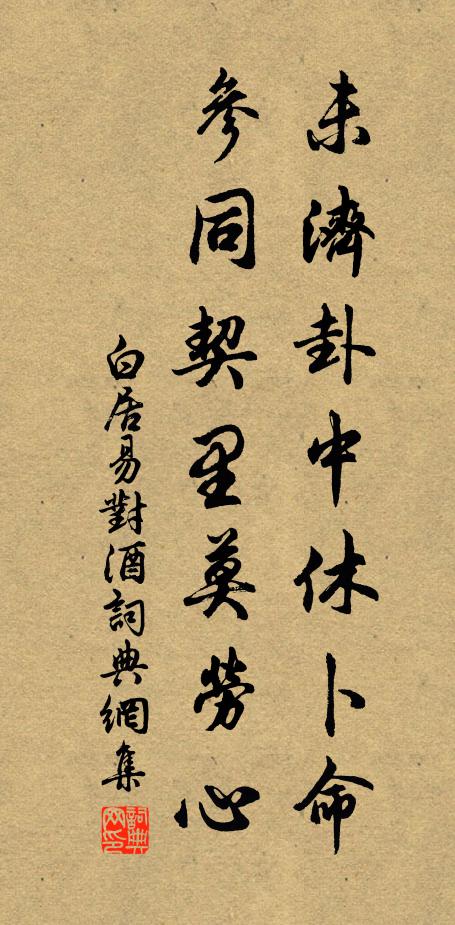 未濟卦中休卜命
參同契里莫勞心
白居易對酒詞典網集
詞典网印